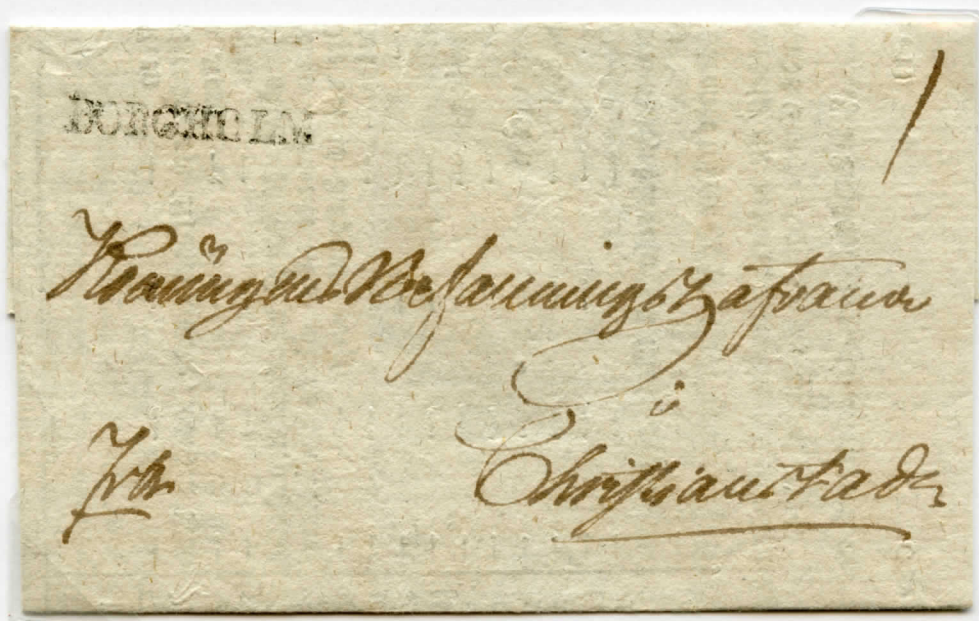 BORGHOLM
1
Konungens Befallningshafvande
i
Christianstad